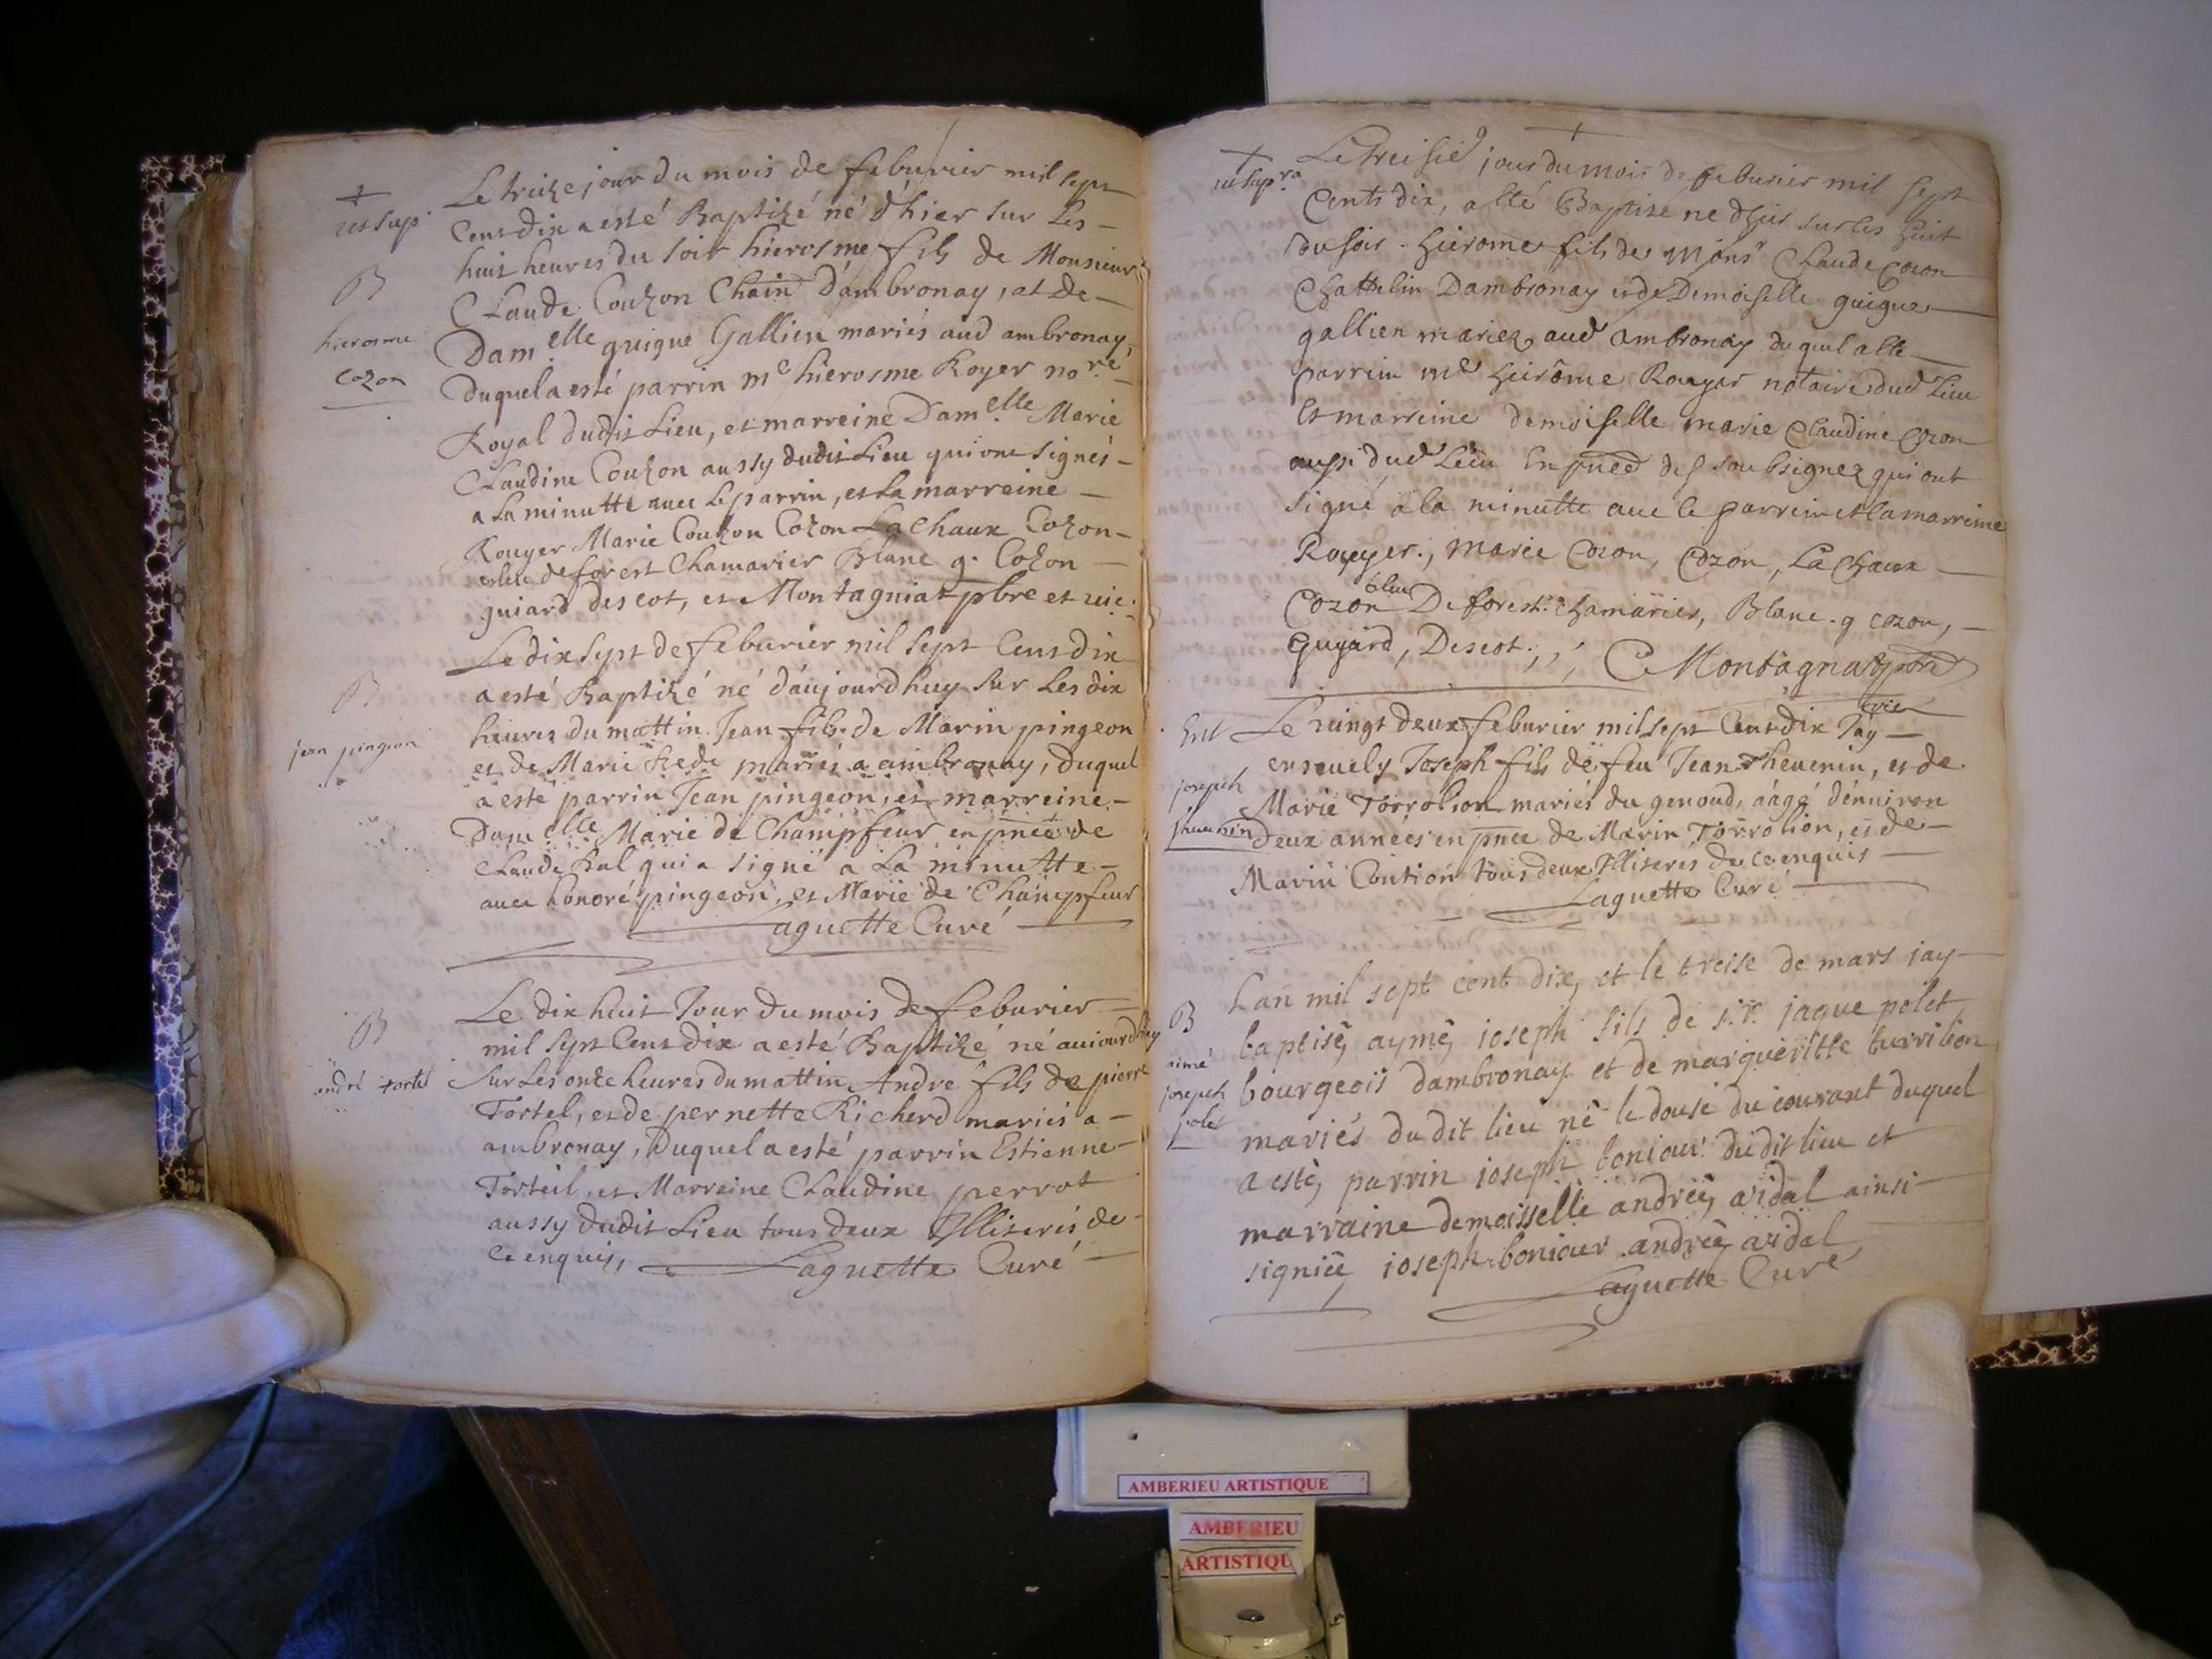 Le treize jour du mois de feburier mil sept
ut sup.
Cens dix a esté Baptizé né d'hier sur Les
huit heures du soir hierosme fils de Monsieur
B
Claude Couzon Chain d'ambronay, et de
hierosme
Dam.elle guigue Gallien mariés aud ambronay,
cozon
Duquel a esté parrin me hierosme Royer no.re
Royal dudit Lieu, et marreine Dam.elle Marie
Claudine Couzon aussy dudit Lieu qui ont signés
a La minutte avec Le parrin, et La marreine
Rouyer Marie Couzon Cozon La Chaux Cozon
esleu deforest Chamarier Blanc g. Cozon
guiard descot, et Montagniat pbre et vic.
Le dix sept de feburier mil sept Cens dix
B
a esté Baptizé né d'aujourdhuy sur Les dix
heures du mattin Jean fils de Marin pingeon
jean pingeon
et de Marie mariés a ambronay, duquel
a esté parrin Jean pingeon, et marreine
Dam.elle Marie de Champfeur en pnce de
Claude qui a signé a La minutte
avec honoré pingeon, et Marie de Champfeur
Laguette Curé
Le dix huit Jour du mois de feburier
B
mil sept Cens dix a esté Baptizé né aujourdhuy
andré tortel
sur Les onze heures du mattin André fils de pierre
Tortel, et de pernette Richerd mariés a
ambronay, Duquel a esté parrin Estienne
Torteil, et Marreine Claudine perrot
aussy dudit Lieu tous deux Illiterés de
ce enquis, Laguette Curé
Le treisie jour du mois de feburier mil sept
ut sup.ra
Cents dix, a été Baptise ne dhier sur les huit
du soir. hierome fils de Monsr Claude Cozon
Chattelin Dambronay et de Demoiselle guigue
gallien mariez aud ambronay duquel a été
parrein me hierôme Rouyer notaire dud Lieu
Et marreine demoiselle marie Claudine Cozon
aussi dud Lieu En pnce des soubsignez qui ont
signé a la minutte avec le parrein et la marreine
Rouyer, marie Cozon, Cozon, La Chaux
Cozon éleu De forest. chamarier, Blanc. g cozon,
Guyard, Descot, Montagnat pbre
vic
Ent Le vingt deux feburier mil sept Cens dix Jáy
ensevely Joseph fils de feu Jean Thevenin, et de
joseph
Marie Torrolion mariés du genoud, aagé d'environ
thevenin
deux années en pnce de Marin Torrolion, et de
Marin Coution tous deux Illiterés de ce enquis
Laguette Curé
Lan mil sept cent dix, et le treise de mars jay
B
baptisé aymé joseph fils de s.r jaque polet
aimé
bourgeois dambronay et de margueritte turrilion
joseph
polet
mariés du dit lieu né le douse du courant duquel
a esté parrin joseph bonjour du dit lieu et
marraine demoisselle andréé vidal ainsi
signéé joseph bonjour andréé vidal
Laguette Curé
AMBERIEU ARTISTIQUE
AMBERIEU
ARTISTIQU